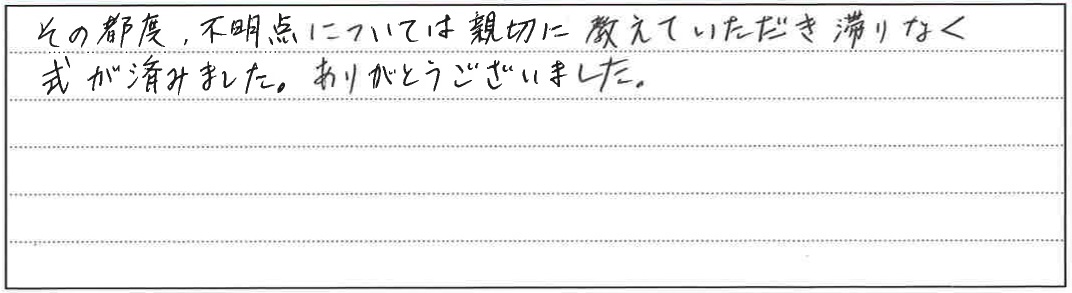 その都度、不明点については親切に教えていただき滞りなく
式が済みました。ありがとうございました。